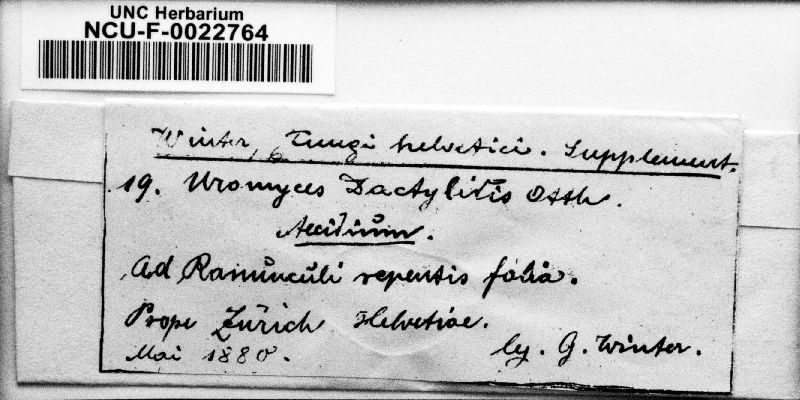 UNC Herbarium
NCU-F-0022764
Winter, Fungi helvetici. Supplement.
19. Uromyces Dactylitis Otth.
Aecidium.
Ad Ranunculi repentis folia.
Prope Zürich Helvetiae.
Mai 1880. lg. G. Winter.